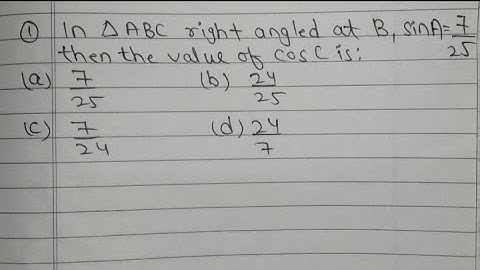 ① In △ABC right angled at B, sinA=7/25
then the value of cosC is:
(a) 7/25 (b) 24/25
(c) 7/24 (d) 24/7